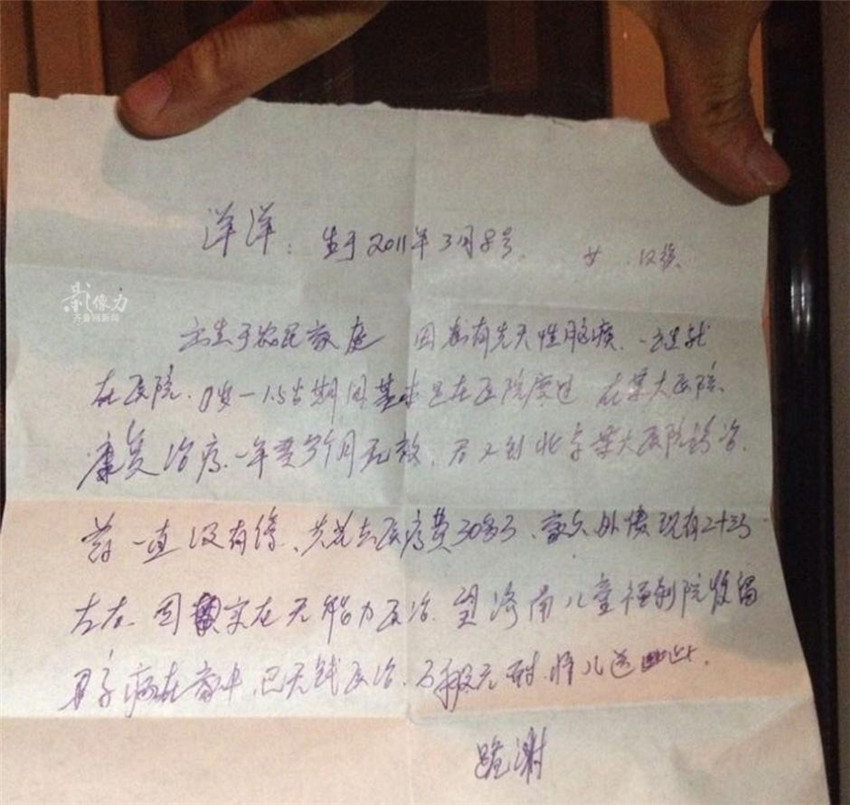 洋洋：生于2011年3月8号. 女 汉族.
影像力
齐鲁网新闻
出生于农民家庭 因患有先天性脑疾. 一出生就
在医院. 0岁—1.5岁期间基本是在医院度过 在某大医院.
康复治疗. 一年零3个月无效. 后又到北京某大医院诊治.
药一直没有停、共花去医疗费30多万、家欠外债现有二十万
左右. 因实在无能力医治. 望济南儿童福利院收留
妻子病在家中, 已无钱医治. 万般无耐. 将儿送此.
跪谢